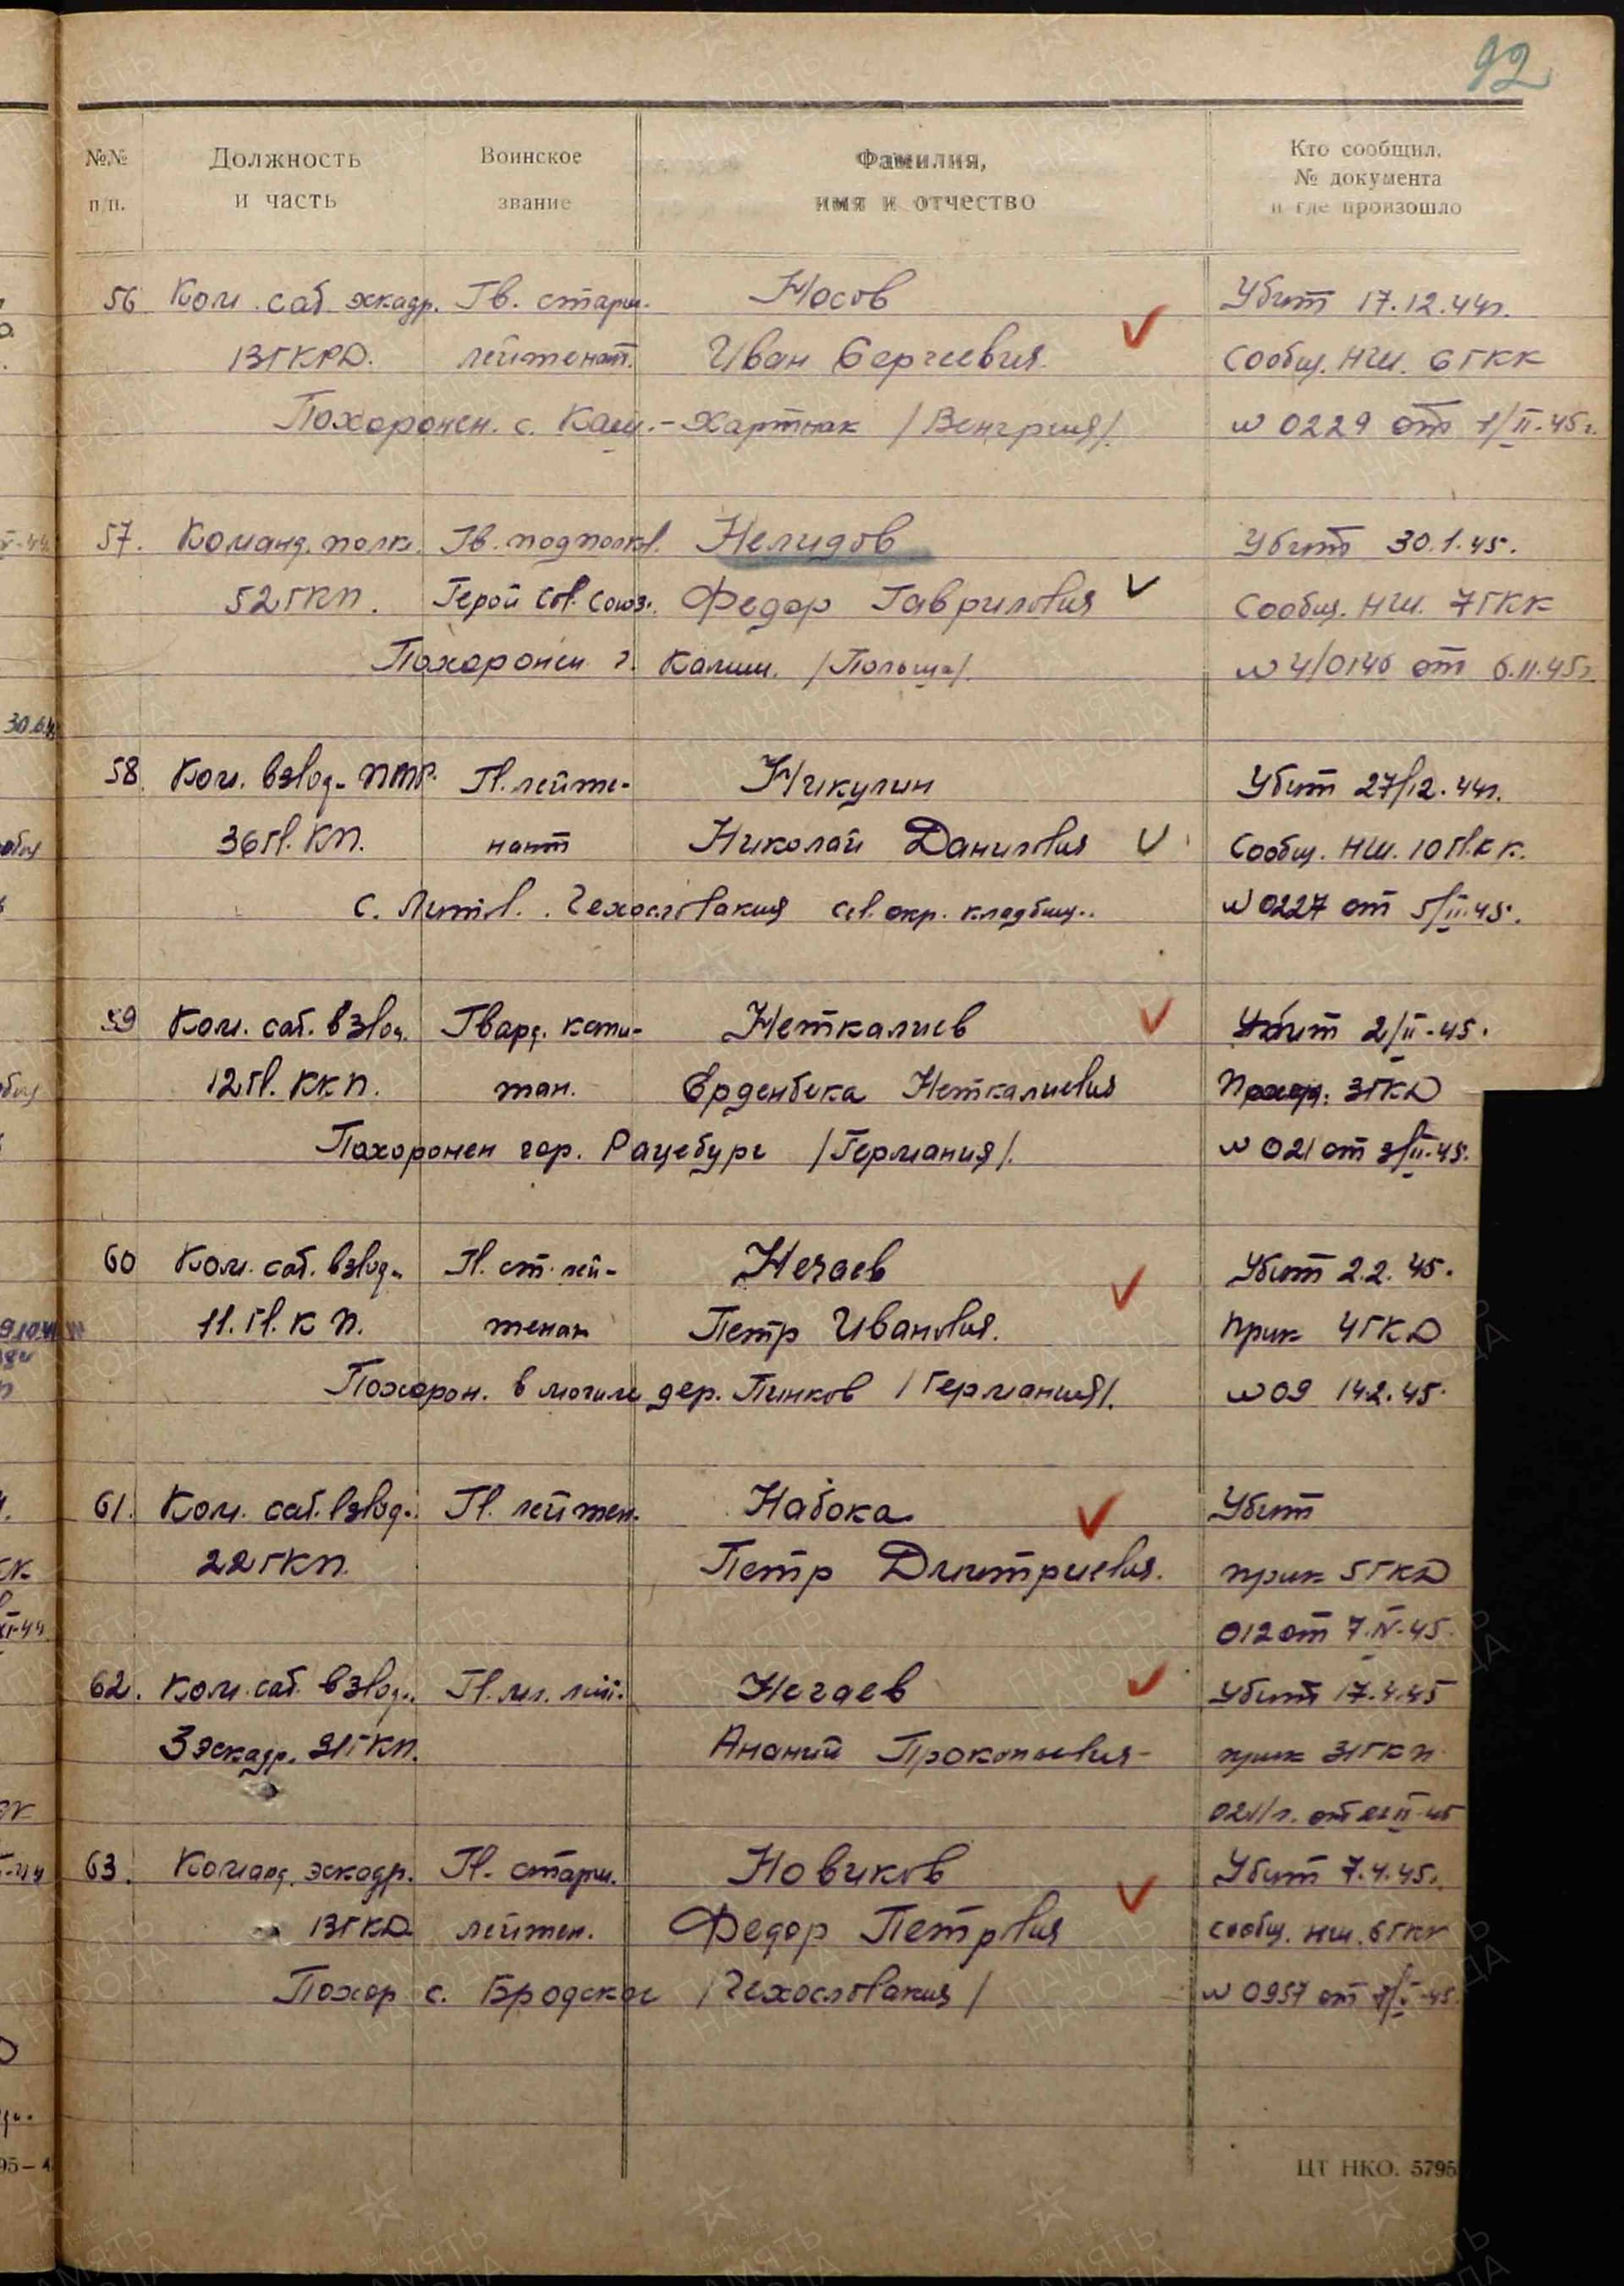 92
№№ п/п.
Должность и часть
Воинское звание
Фамилия, имя и отчество
Кто сообщил. № документа и где произошло
56 Ком. саб. эскадр. Гв. старш. Носов Убит 17.12.44г.
13ГКРД. лейтенант. Иван Сергеевич Сообщ. НШ. 6ГКК
Похоронен. с. Каш.-Хартнак /Венгрия/. № 0229 от 1/II-45г.
57. Команд. полк. Гв. подполкв. Нелидов Убит 30.1.45.
52ГКП. Герой Сов. Союз. Федор Гаврилович Сообщ. НШ. 7ГКК
Похоронен г. Калиш. /Польша/. № 4/0146 от 6.II.45г.
58. Ком. взвод. ПТР. Гв. лейте- Никулин Убит 27/12.44г.
36 гв. КП. нант Николай Данилович Сообщ. НШ. 10 гв. КК.
с. Чехословакия сев. окр. кладбищ.. № 0227 от 5/II.45.
59 Ком. саб. взвод. Гвард. капи- Неткалиев Убит 2/II-45.
12 гв. ККП. тан. Ерденбека Неткалиевич 3ГКД
Похоронен гор. Рацебург /Германия/. № 021 от 3/II-45.
60 Ком. саб. взвод. Гв. ст. лей- Нечаев Убит 2.2.45.
11. гв. КП. тенан Петр Иванович. Прик 4ГКД
Похорон. в могиле дер. Пинков /Германия/. № 09 14.2.45.
61. Ком. саб. взвод. Гв. лейтен. Набока Убит
22ГКП. Петр Дмитриевич. прик 5ГКД
012 от 7.IV-45.
62. Ком. саб. взвод. Гв. мл. лейт. Нечаев Убит 17.4.45
3 эскадр. 31ГКП. Ананий Прокопьевич- прик 31ГКП
63. Команд. эскадр. Гв. старш. Новиков Убит 7.4.45г.
13ГКД лейтен. Федор Петрович сообщ. НШ. 6ГКК
Похор с. Бродское /Чехословакия/ № 0957 от
ЦТ НКО. 5795